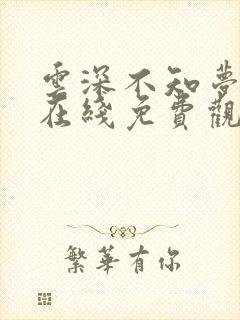 雲深不知夢
在綫免費觀
繁華有你